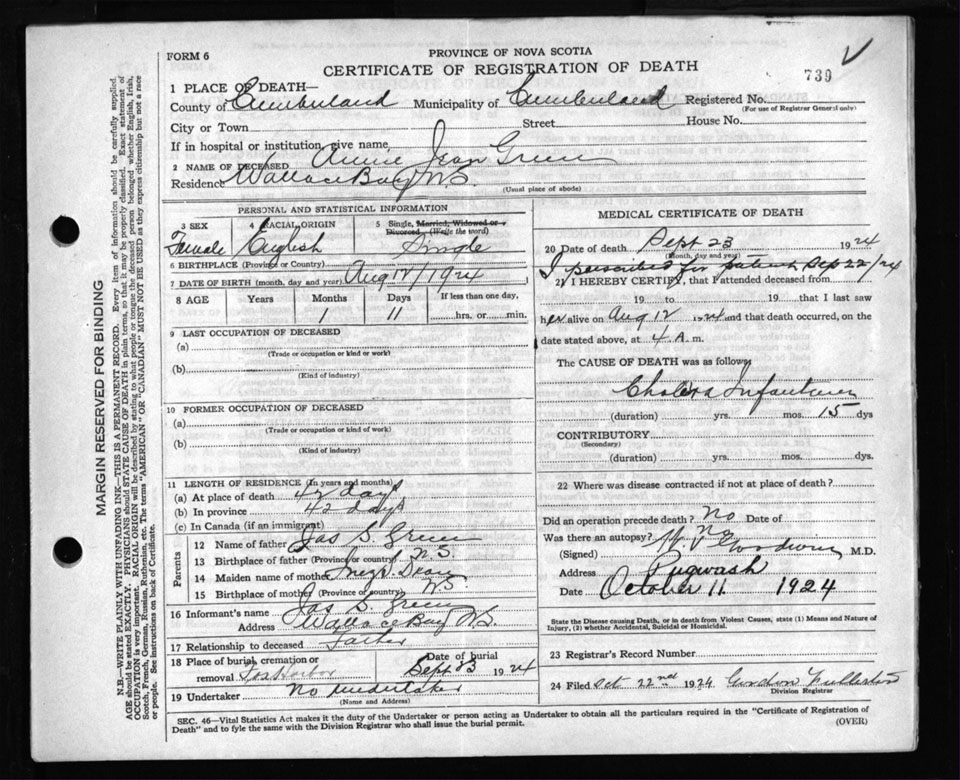 PROVINCE OF NOVA SCOTIA
FORM 6
CERTIFICATE OF REGISTRATION OF DEATH
739
1 PLACE OF DEATH—
County of Cumberland Municipality of Cumberland Registered No.
(For use of Registrar General only)
City or Town Street House No.
If in hospital or institution, give name
2 NAME OF DECEASED Annie Jean Green
Residence Wallace Bay N.S.
(Usual place of abode)
PERSONAL AND STATISTICAL INFORMATION
3 SEX 4 RACIAL ORIGIN 5 Single, Married, Widowed or Divorced (Write the word)
Female English Single
6 BIRTHPLACE (Province or Country)
7 DATE OF BIRTH (month, day and year) Aug 12/1924
8 AGE Years Months Days If less than one day,
1 11 hrs. or min.
9 LAST OCCUPATION OF DECEASED
(a)
(Trade or occupation or kind or work)
(b)
(Kind of industry)
10 FORMER OCCUPATION OF DECEASED
(a)
(Trade or occupation or kind or work)
(b)
(Kind of industry)
11 LENGTH OF RESIDENCE (In years and months)
(a) At place of death 42 days
(b) In province 42 days
(c) In Canada (if an immigrant)
Parents
12 Name of father Jas S. Green
13 Birthplace of father (Province or country) N.S.
14 Maiden name of mother
15 Birthplace of mother (Province or country) N.S.
16 Informant's name Jas S. Green
Address Wallace Bay N.S.
17 Relationship to deceased Father
18 Place of burial, cremation or removal Fox Harbor Date of burial Sept 23 1924
19 Undertaker No undertaker
(Name and Address)
MEDICAL CERTIFICATE OF DEATH
20 Date of death Sept 23 1924
(Month, day and year)
I perscribed for patient Sep 22/24
21 I HEREBY CERTIFY, that I attended deceased from
19 to 19 that I last saw
her alive on Aug 12 1924 and that death occurred, on the
date stated above, at 4 A.m.
The CAUSE OF DEATH was as follows:
Cholera Infantum
(duration) yrs. mos. 15 dys
CONTRIBUTORY
(Secondary)
(duration) yrs. mos. dys
22 Where was disease contracted if not at place of death?
Did an operation precede death? No Date of
Was there an autopsy? No
(Signed) Goodwin M.D.
Address Pugwash
Date October 11 1924
State the Disease causing Death, or in death from Violent Causes, state (1) Means and Nature of
Injury, (2) whether Accidental, Suicidal or Homicidal.
23 Registrar's Record Number
24 Filed Oct 22nd 1924 Gordon Fullerton
Division Registrar
SEC. 46—Vital Statistics Act makes it the duty of the Undertaker or person acting as Undertaker to obtain all the particulars required in the "Certificate of Registration of
Death" and to fyle the same with the Division Registrar who shall issue the burial permit. (OVER)
MARGIN RESERVED FOR BINDING
N.B.—WRITE PLAINLY WITH UNFADING INK—THIS IS A PERMANENT RECORD. Every item of information should be carefully supplied.
AGE should be stated EXACTLY. PHYSICIANS should STATE CAUSE OF DEATH in plain terms, so that it may be properly classified. Exact statement of
OCCUPATION is very important. RACIAL ORIGIN will be described by stating to what people or tongue the deceased person belonged whether English, Irish,
Scotch, French, German, Russian, Ruthenian, etc. The terms "AMERICAN" OR "CANADIAN" MUST NOT BE USED as they express citizenship but not a race
or people. See instructions on back of Certificate.